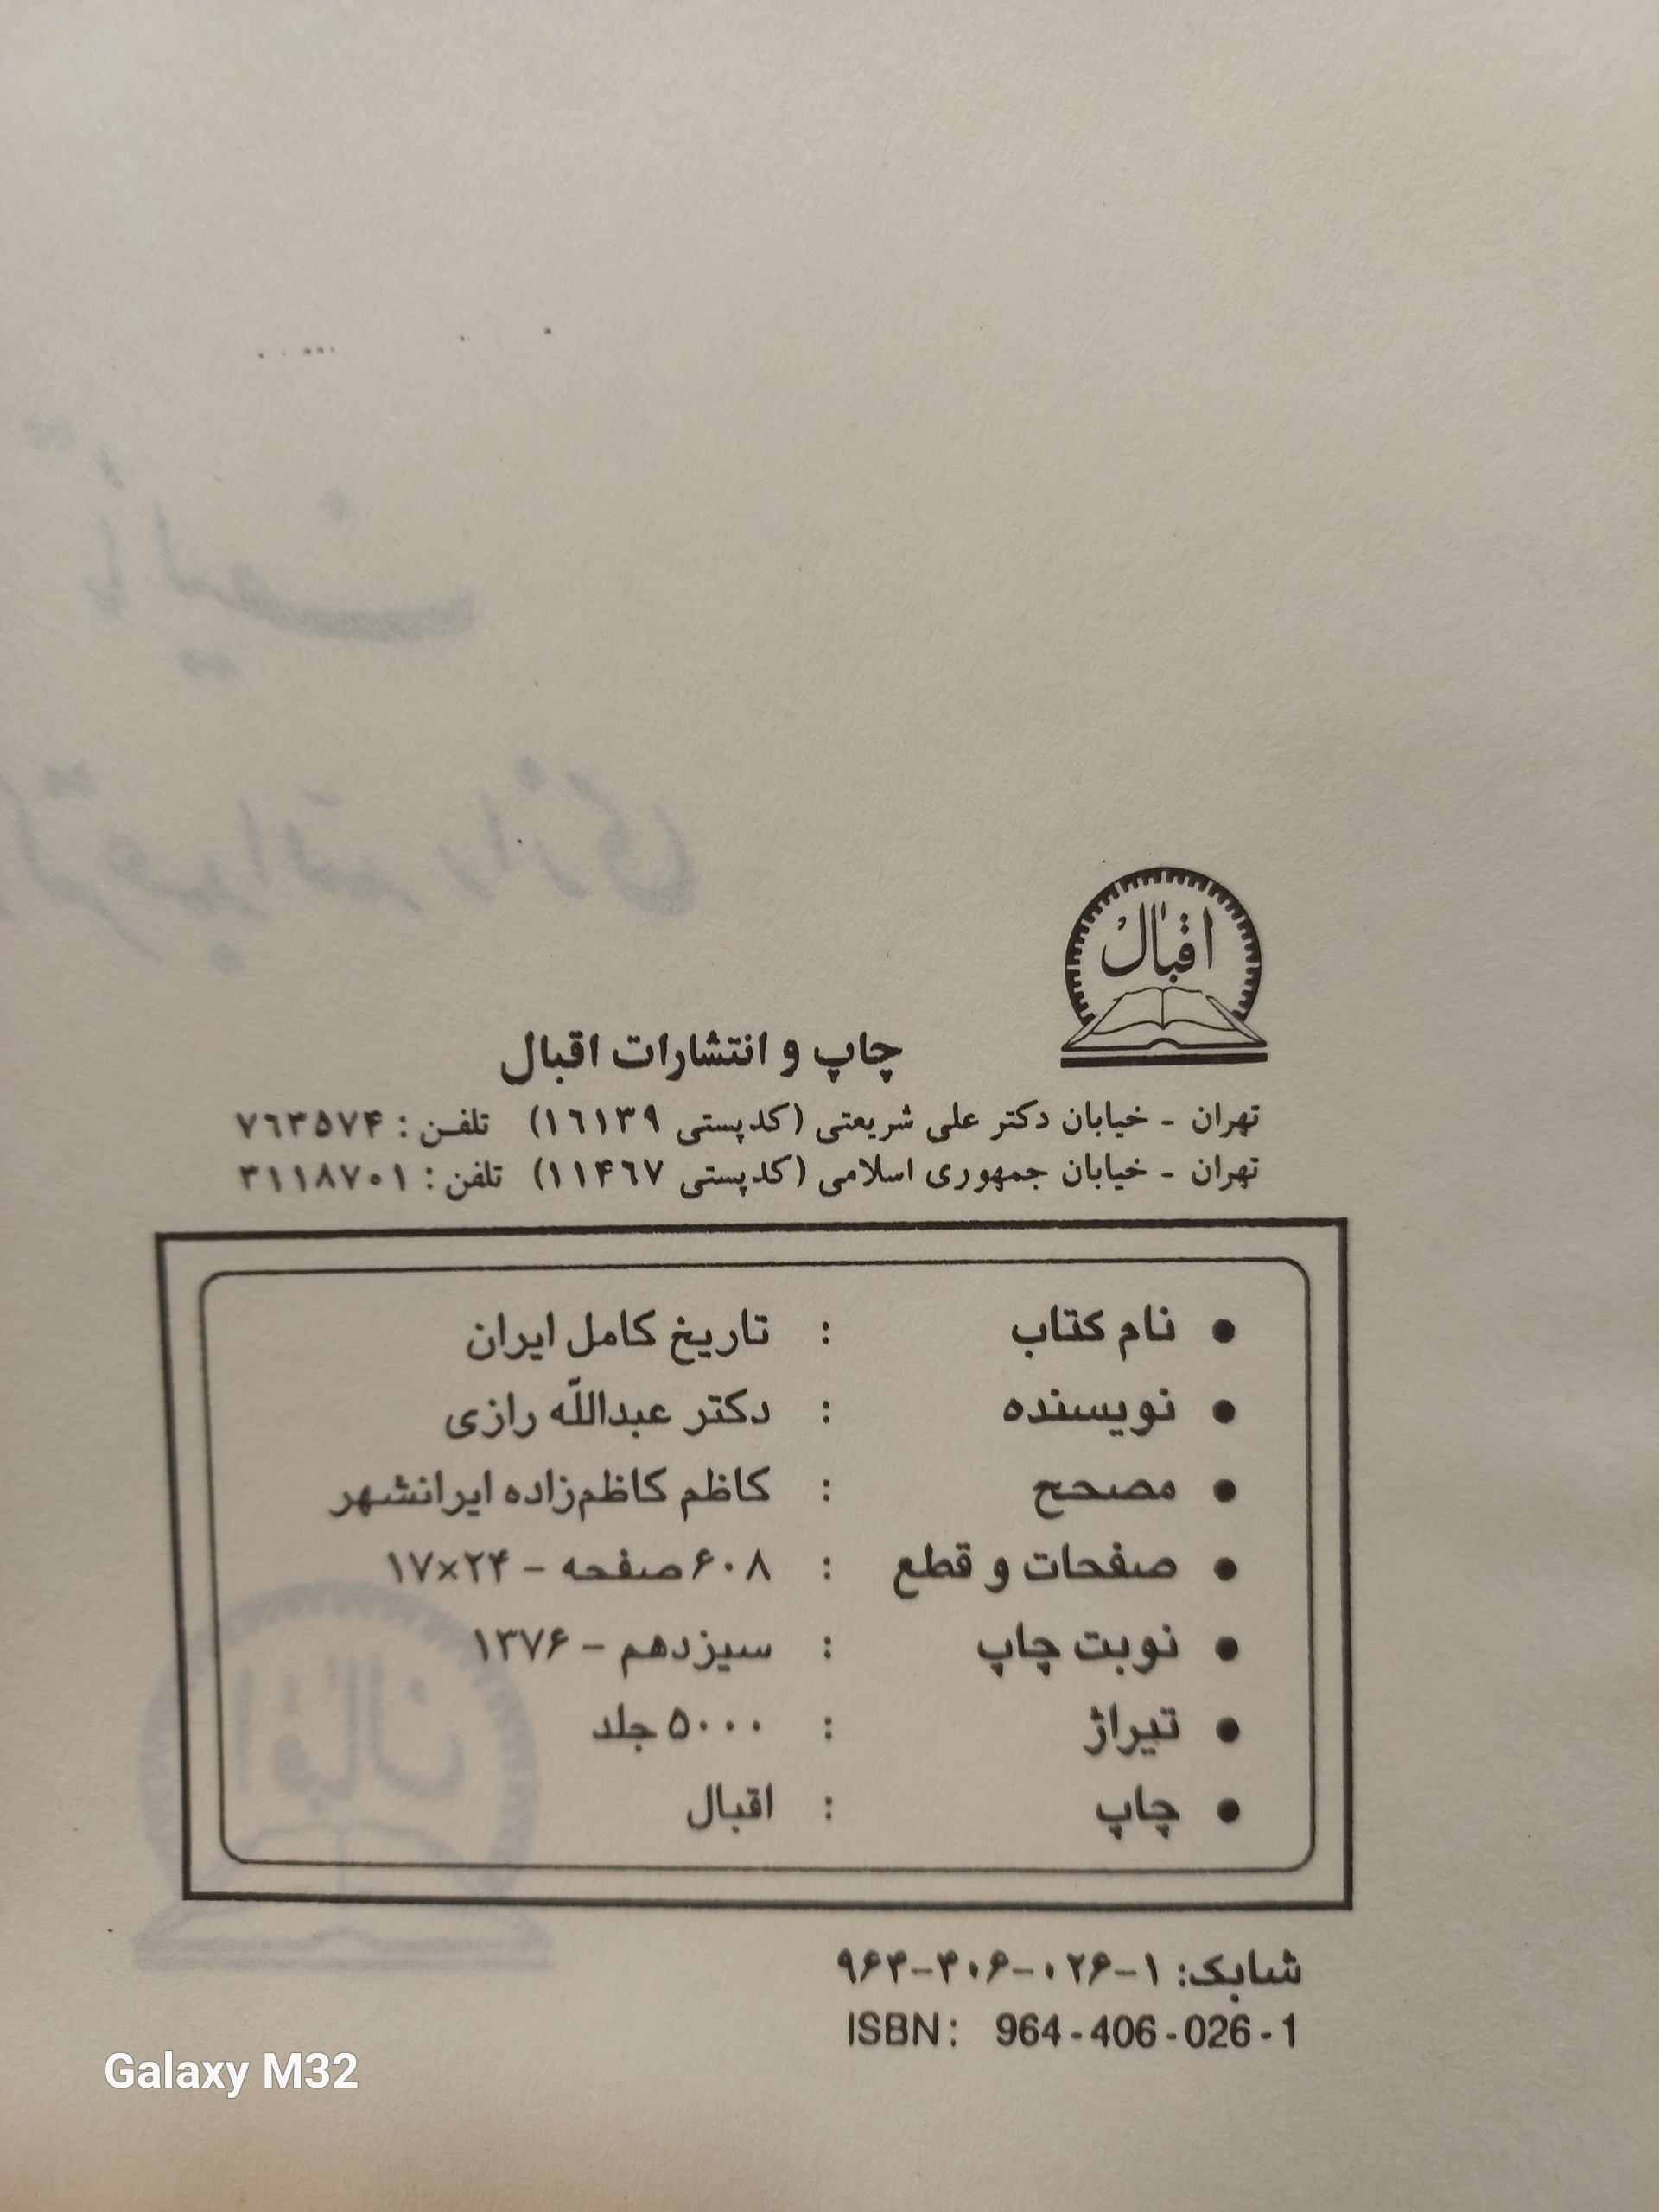 اقبال
چاپ و انتشارات اقبال
تهران - خیابان دکتر علی شریعتی (کدپستی ۱۶۱۳۹) تلفـن : ۷۶۳۵۷۴
تهران - خیابان جمهوری اسلامی (کدپستی ۱۱۴۶۷) تلفن : ۳۱۱۸۷۰۱
● نام کتاب : تاریخ کامل ایران
● نویسنده : دکتر عبداللّه رازی
● مصحح : کاظم کاظم‌زاده ایرانشهر
● صفحات و قطع : ۶۰۸ صفحه – ۱۷×۲۴
● نوبت چاپ : سیزدهم – ۱۳۷۶
● تیراژ : ۵۰۰۰ جلد
● چاپ : اقبال
شابک: ۱-۰۲۶-۴۰۶-۹۶۴
ISBN: 964-406-026-1
Galaxy M32